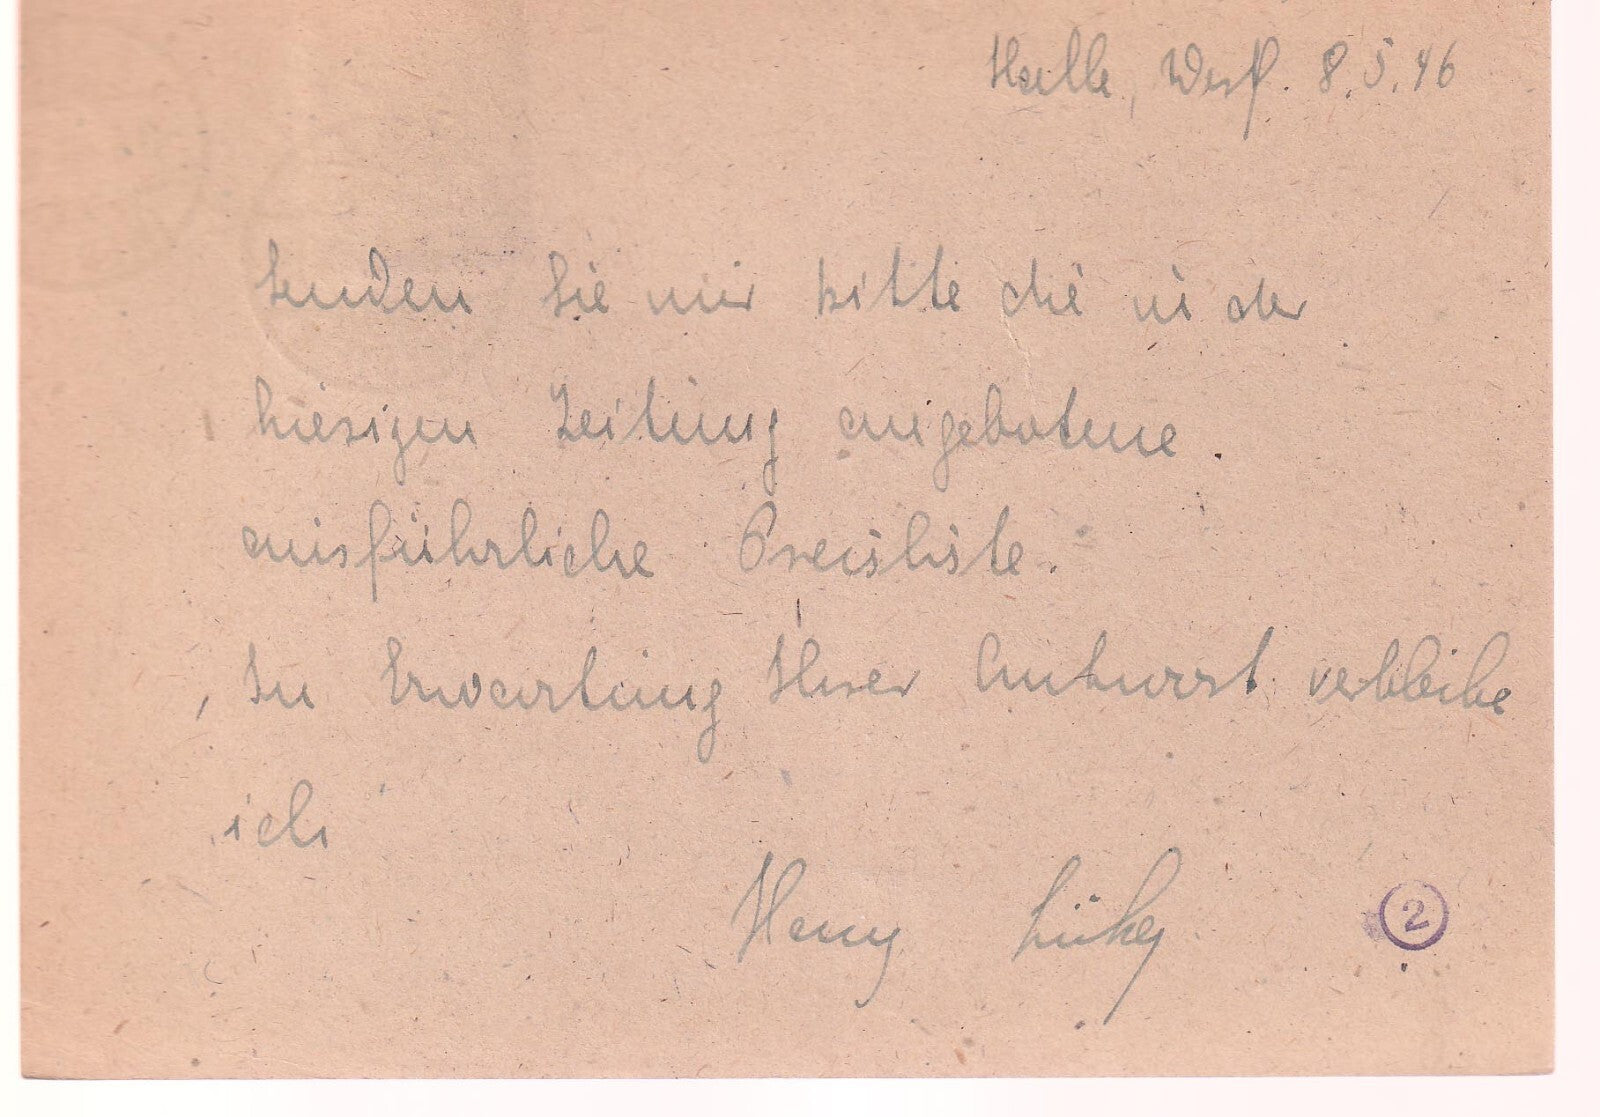 Halle, Westf. 8.5.46
Senden Sie mir bitte die in der
hiesigen Zeitung angebotene
ausführliche Preisliste.
In Erwartung Ihrer Antwort verbleibe
ich
Henny
2